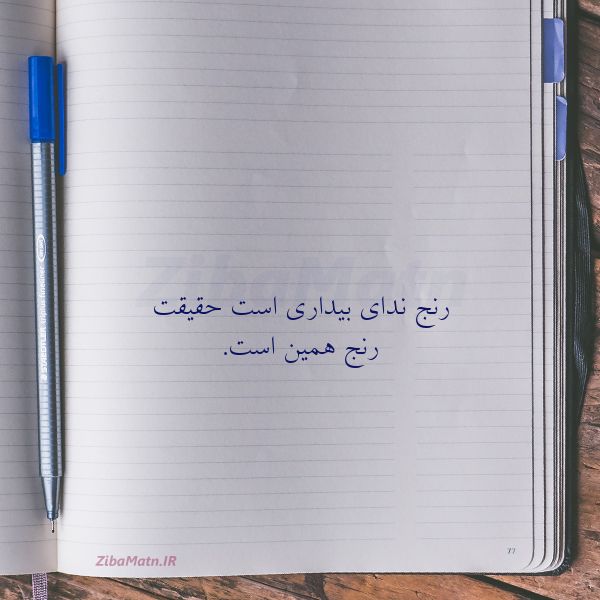 ZibaMatn
رنج ندای بیداری است حقیقت
رنج همین است.
77
ZibaMatn.IR